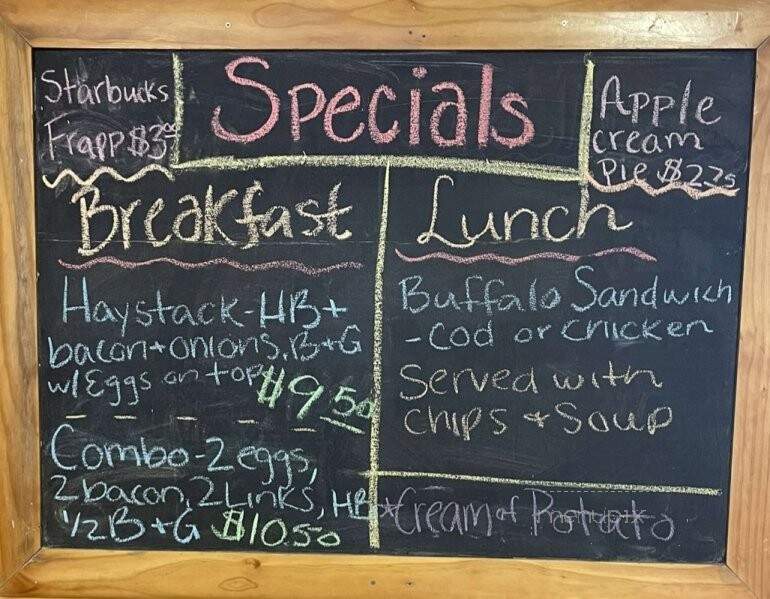 Starbucks
Frapp $3.00
Specials
Apple
cream
Pie $2.75
Breakfast
Haystack - HB +
bacon + onions, B + G
w/Eggs on top
$9.50
Combo - 2 eggs,
2 bacon, 2 Links, HB
1/2 B + G $10.50
Lunch
Buffalo Sandwich
- Cod or Chicken
Served with
Chips & Soup
*Cream of Potato